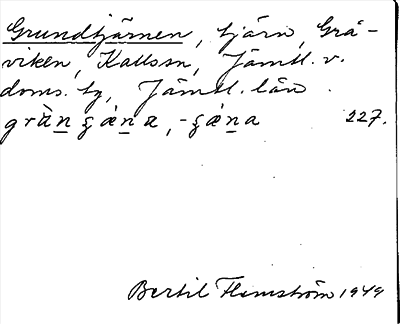 Grundtjärnen, tjärn, Grå-
viken, Kallssn, Jämtl. v.
doms. tg, Jämtl. län.
gràn̲ ʂæ̀n̲a, -ʂæ̀n̲a 227.
Bertil Flemström 1949